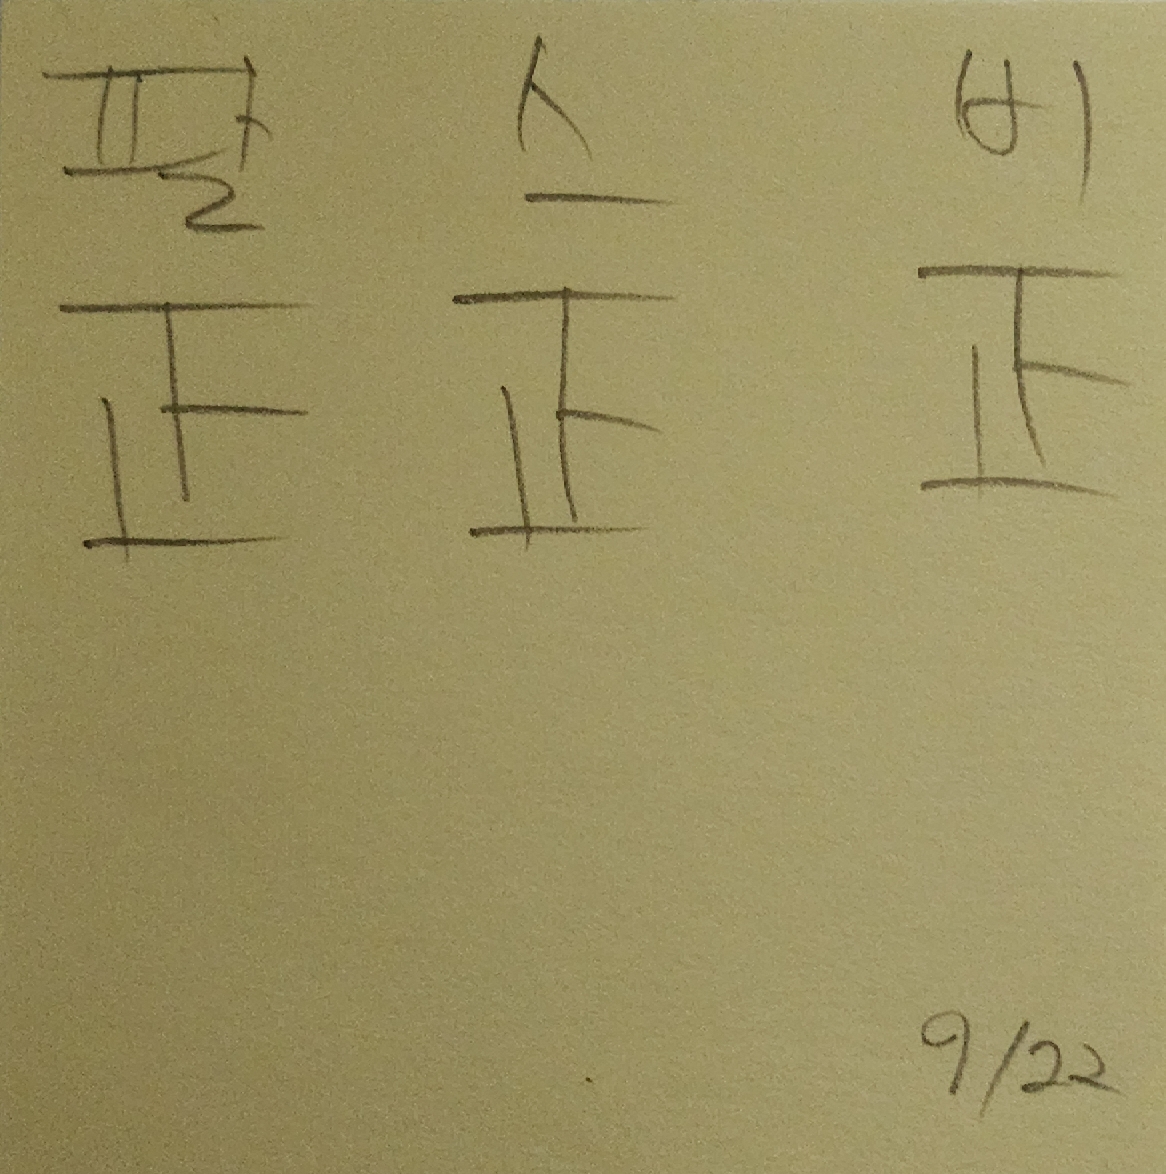 팔 스 비
正 正 正
9/22